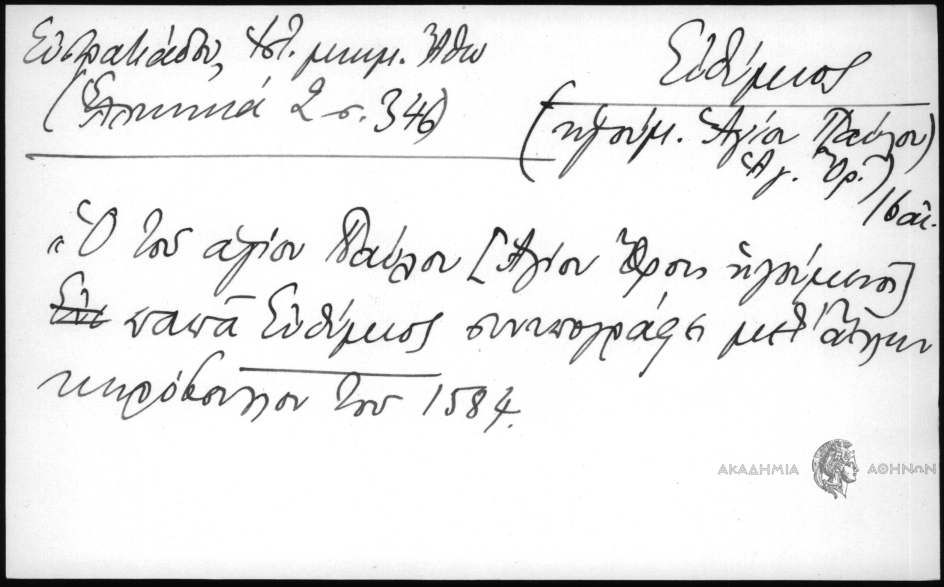 Εὐστρατιάδου, Ἱστ. μνημ. Ἄθω
(Ἑλληνικά 2 σ. 346)
Εὐθύμιος
(ἡγούμ. Ἁγίου Παύλου)
Ἁγ. Ὄρ.)
16 αἰ.
„Ὁ τοῦ ἁγίου Παύλου [Ἁγίου Ὄρους ἡγούμενος]
παπᾶ Εὐθύμιος συνυπογράφει μετ' ἄλλων
κηρόβουλλον τοῦ 1584.
ΑΚΑΔΗΜΙΑ ΑΘΗΝΩΝ